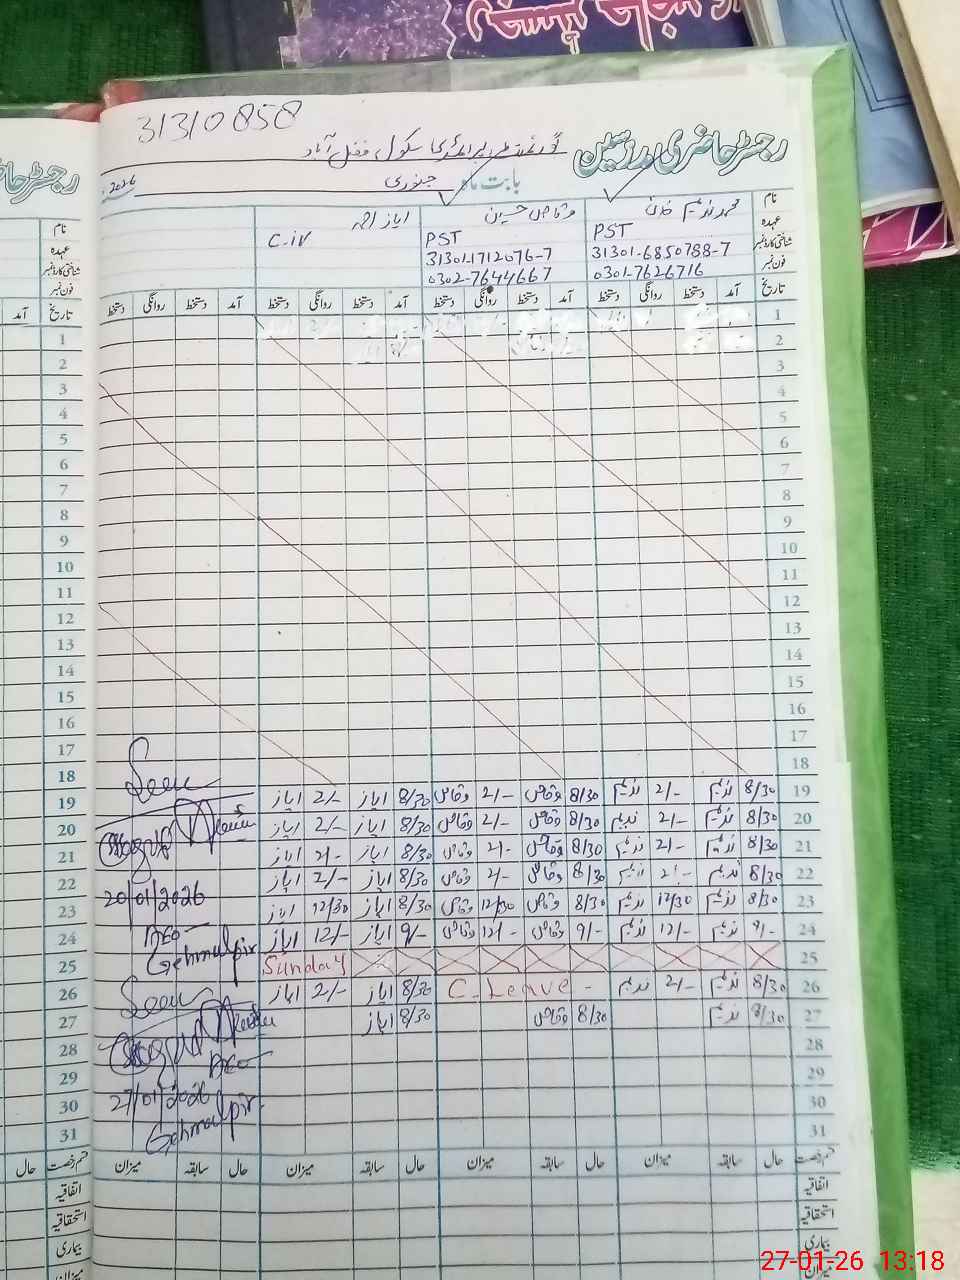 31310858
رجسٹر حاضری مدرسین
گورنمنٹ پرائمری سکول فضل آباد
بابت ماہ جنوری 2026
نام محمد ندیم خان وقاص حسین ایاز احمد
عہدہ PST PST C.iv
شناختی کارڈ نمبر 31301-6850788-7 31301-1712076-7
فون نمبر 0301-7626716 0302-7644667
تاریخ آمد دستخط روانگی دستخط آمد دستخط روانگی دستخط آمد دستخط روانگی دستخط آمد دستخط روانگی دستخط
1
2
3
4
5
6
7
8
9
10
11
12
13
14
15
16
17
18
19 8/30 ندیم 2/- ندیم 8/30 وقاص 2/- وقاص 8/30 ایاز 2/- ایاز
20 8/30 ندیم 2/- ندیم 8/30 وقاص 2/- وقاص 8/30 ایاز 2/- ایاز
21 8/30 ندیم 2/- ندیم 8/30 وقاص 2/- وقاص 8/30 ایاز 2/- ایاز
22 8/30 ندیم 2/- ندیم 8/30 وقاص 2/- وقاص 8/30 ایاز 2/- ایاز
23 8/30 ندیم 12/30 ندیم 8/30 وقاص 12/30 وقاص 8/30 ایاز 12/30 ایاز
24 9/- ندیم 12/- ندیم 9/- وقاص 12/- وقاص 9/- ایاز 12/- ایاز
25 Sunday
26 8/30 ندیم 2/- ندیم C. Leave - 8/30 ایاز 2/- ایاز
27 8/30 ندیم 8/30 وقاص 8/30 ایاز
28
29
30
31
Seen
20/01/2026
Seen
27/01/2026
قسم رخصت حال سابقہ میزان حال سابقہ میزان حال سابقہ میزان حال سابقہ میزان
اتفاقیہ
استحقاقیہ
بیماری
میزان
27-01-26 13:18